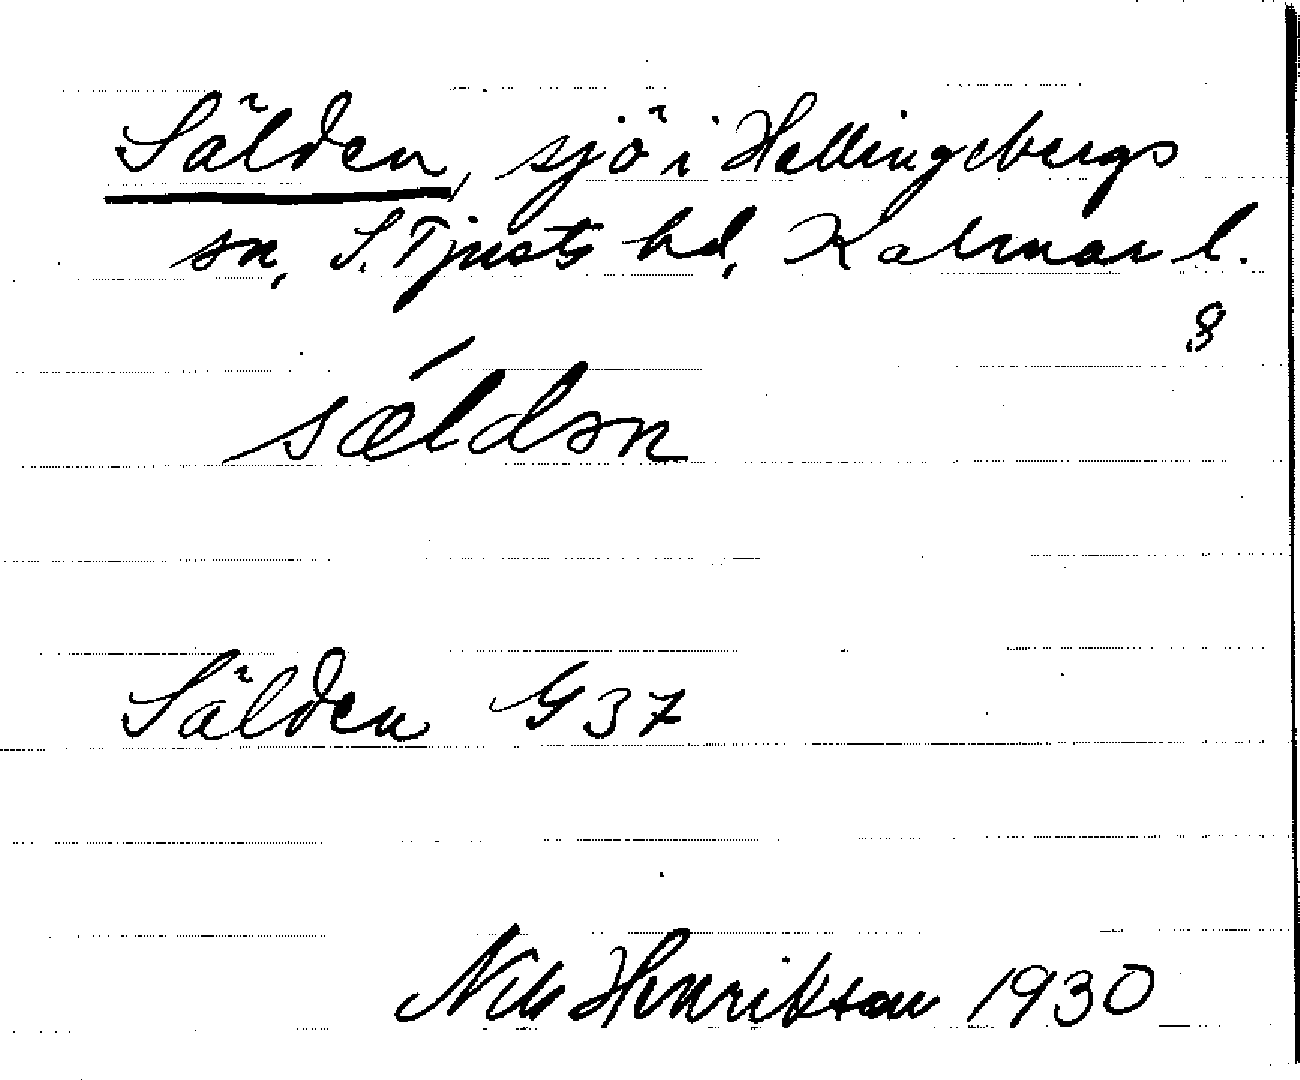 Sälden, sjö i Hallingebergs
sn, S. Tjusts hd, Kalmar l.
8
sǽldən
Sälden G 37
Nils Henrikson 1930